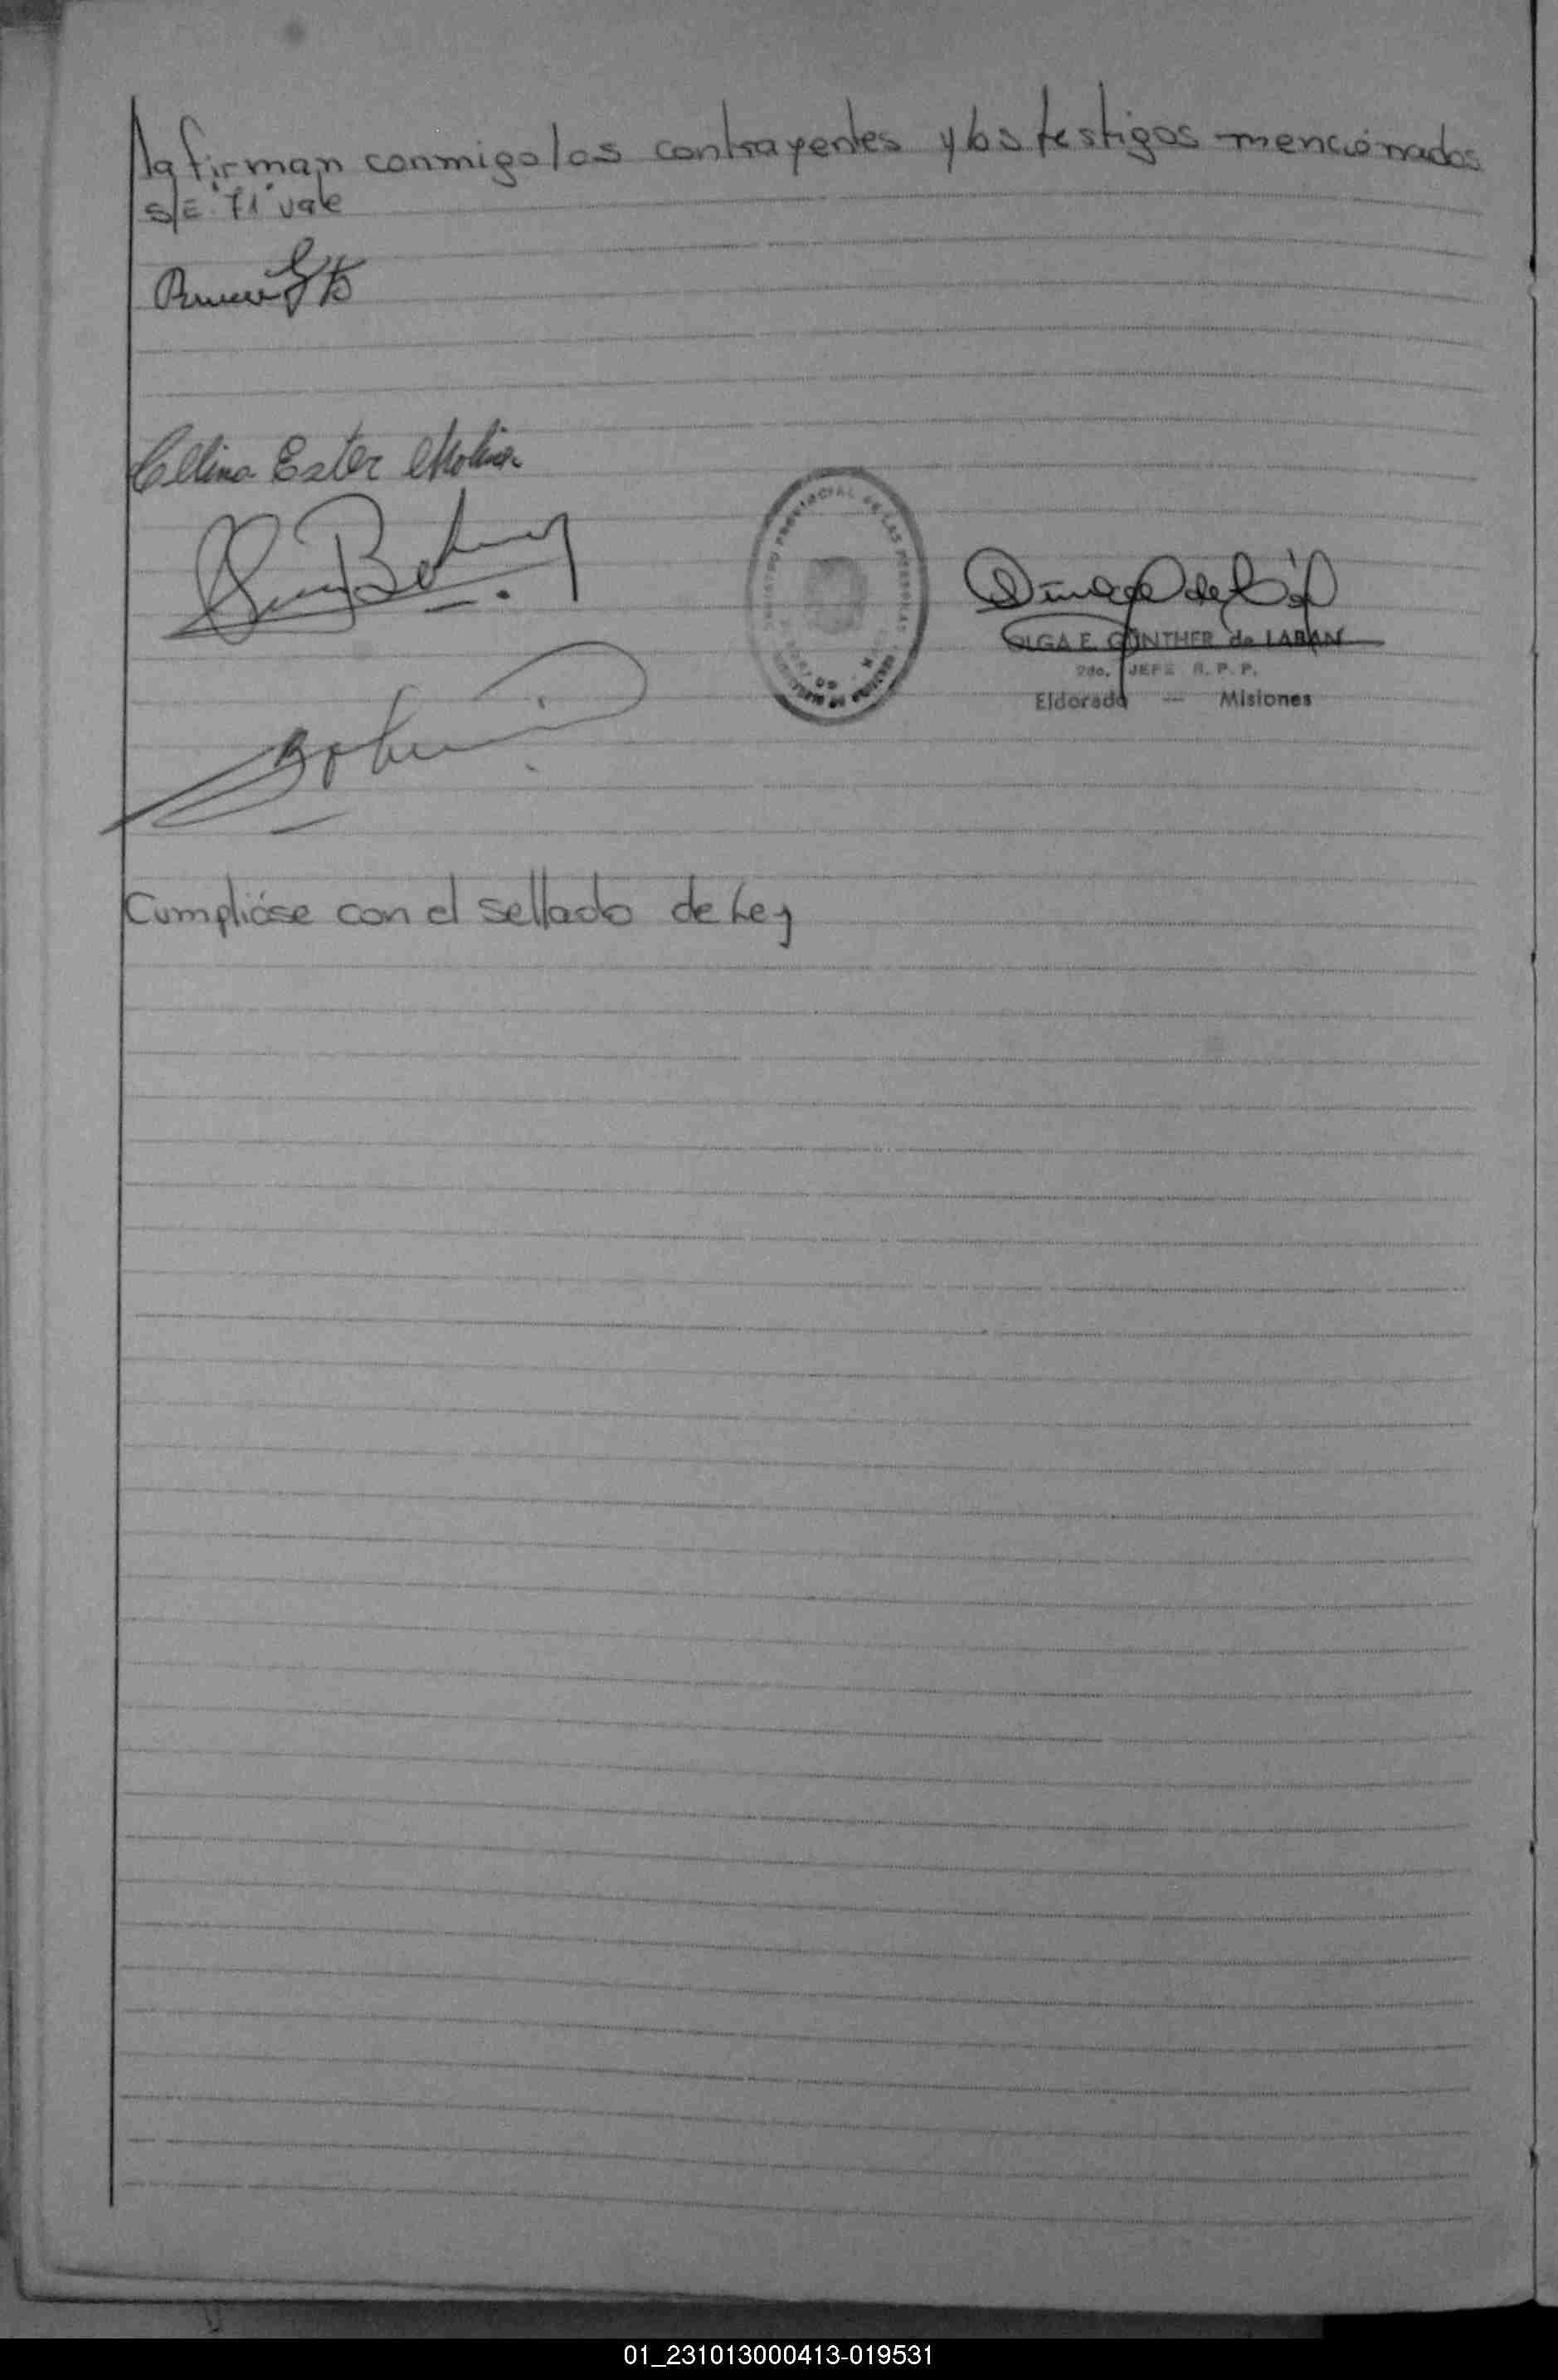 la firman conmigo los contrayentes y los testigos mencionados
S/E: "71" vale
Celina Ester Molina
REGISTRO PROVINCIAL DE LAS PERSONAS
OLGA E. GÜNTHER de LABAN
2do. JEFE R. P. P.
Eldorado — Misiones
Cumplióse con el sellado de Ley
01_231013000413-019531